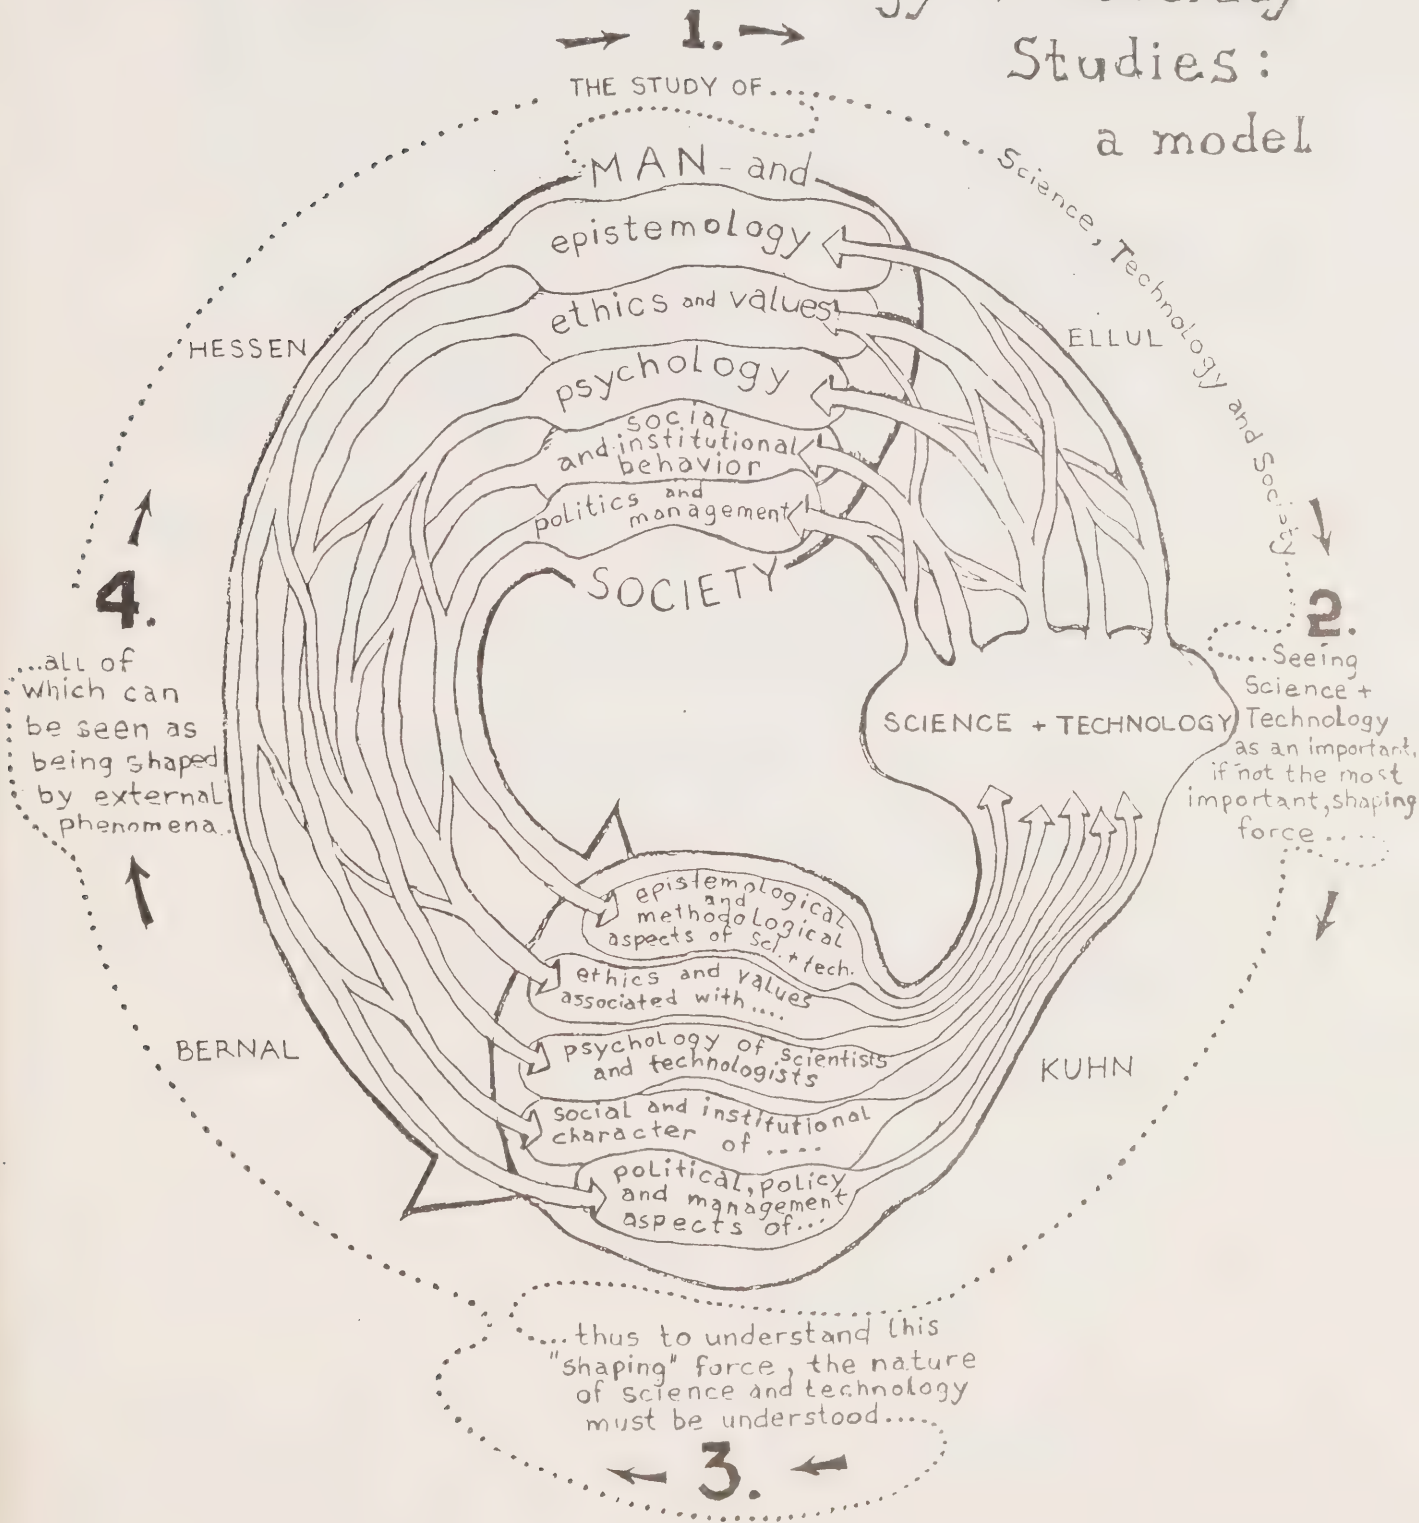 Studies:
a model
→ 1. →
THE STUDY OF....
Science, Technology and Society
MAN - and
epistemology
ethics and values
psychology
social
and institutional
behavior
politics and
management
SOCIETY
HESSEN
ELLUL
2.
....Seeing
Science +
Technology
as an important,
if not the most
important, shaping
force ....
SCIENCE + TECHNOLOGY
4.
...all of
which can
be seen as
being shaped
by external
phenomena.
epistemological
and
methodological
aspects of Sci. + tech.
ethics and values
associated with....
psychology of scientists
and technologists
social and institutional
character of ....
political, policy
and management
aspects of...
BERNAL
KUHN
....thus to understand this
"shaping" force, the nature
of science and technology
must be understood.....
3.